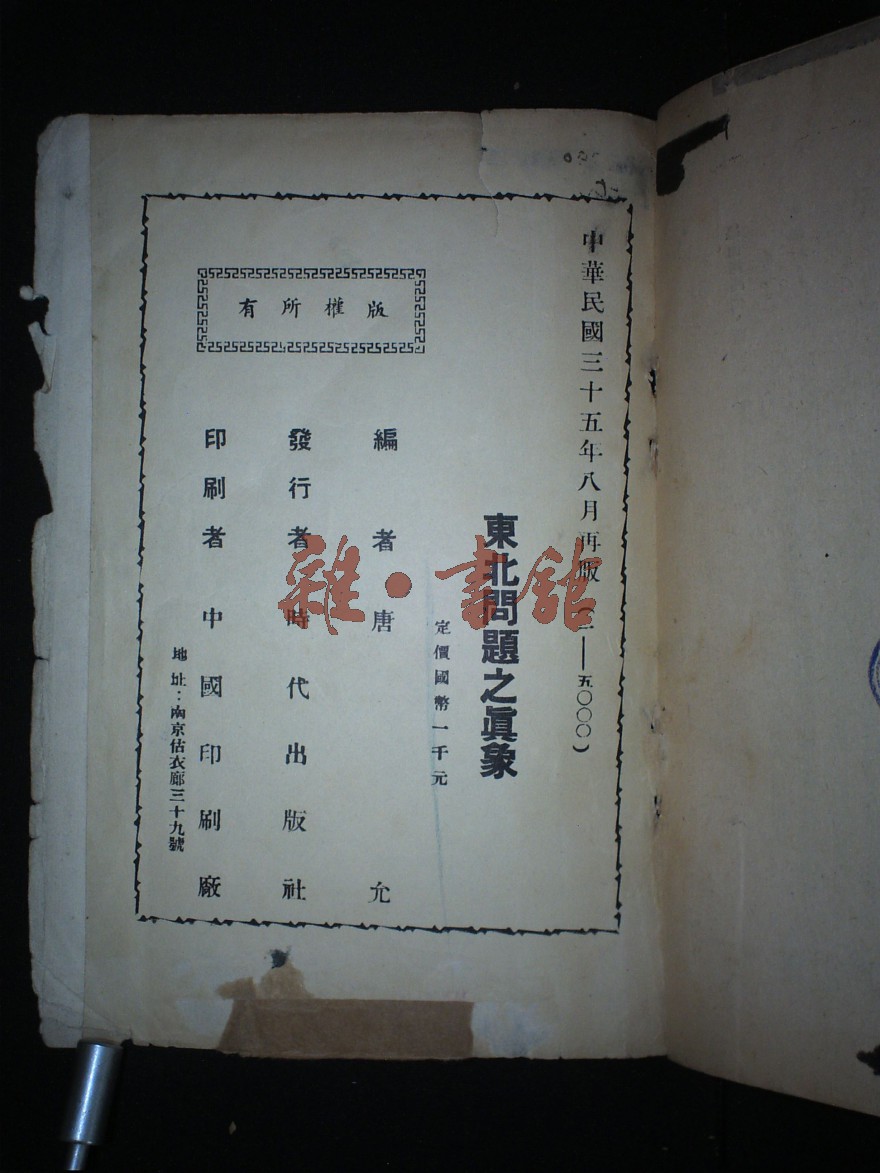 中華民國三十五年八月再版(一——五〇〇〇)
東北問題之眞象
定價國幣一千元
編者唐允
發行者時代出版社
印刷者中國印刷廠
地址:南京估衣廊三十九號
版權所有
雜·書館